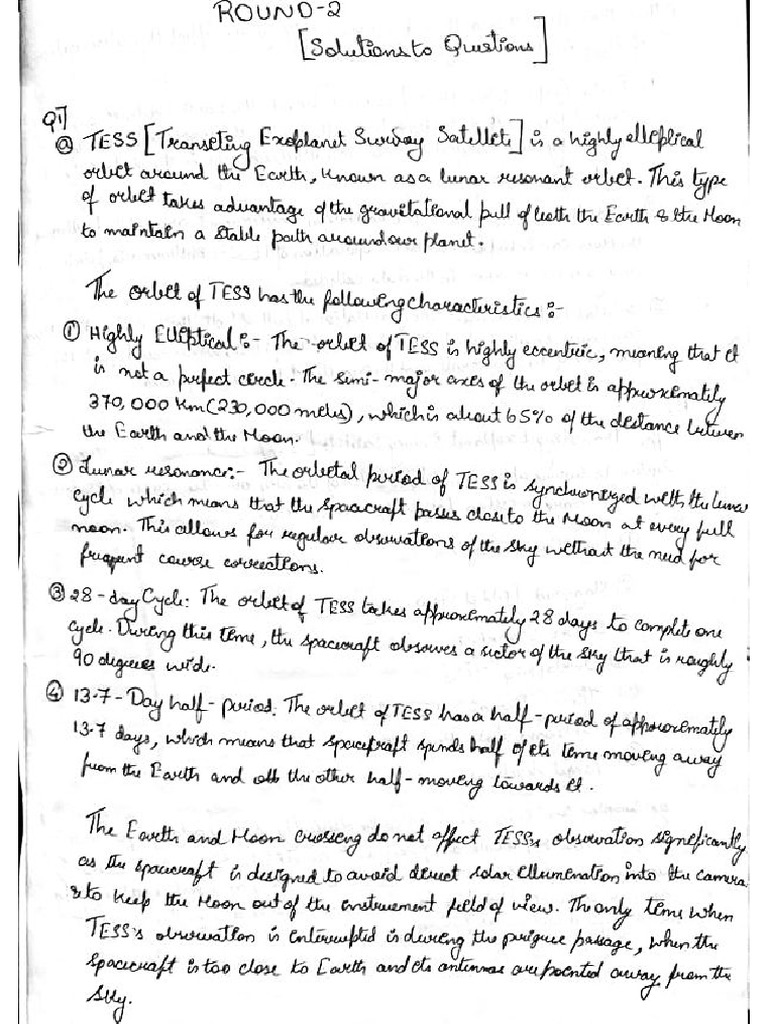 ROUND-2
[Solutions to Questions]
Q1]
(a) TESS [Transeting Exoplanet Survay Satellite] is a highly elleptical
orbet around the Earth, known as a lunar resonant orbet. This type
of orbet takes advantage of the gravitational pull of both the Earth & the Moon
to maintain a stable path around our planet.
The orbet of TESS has the following characteristics :-
① Highly Elleptical :- The orbet of TESS is highly eccentric, meaning that it
is not a perfect circle. The semi-major axes of the orbet is approximately
370,000 Km (230,000 meles), which is about 65% of the distance between
the Earth and the Moon.
② Lunar resonance :- The orbetal period of TESS is synchronized with the lunar
cycle which means that the spacecraft passes close to the Moon at every full
moon. This allows for regular observations of the sky without the need for
frequent course corrections.
③ 28-day Cycle: The orbet of TESS takes approximately 28 days to complete one
cycle. During this time, the spacecraft observes a sector of the sky that is roughly
90 degrees wide.
④ 13.7-Day half-period: The orbet of TESS has a half-period of approximately
13.7 days, which means that spacecraft spends half of its time moving away
from the Earth and the other half-moving towards it.
The Earth and Moon crossing do not affect TESS's observation significantly
as the spacecraft is designed to avoid direct solar illumination into the camera
& to keep the Moon out of the instrument field of view. The only time when
TESS's observation is interrupted is during the perigree passage, when the
spacecraft is too close to Earth and its antennas are pointed away from the
sky.